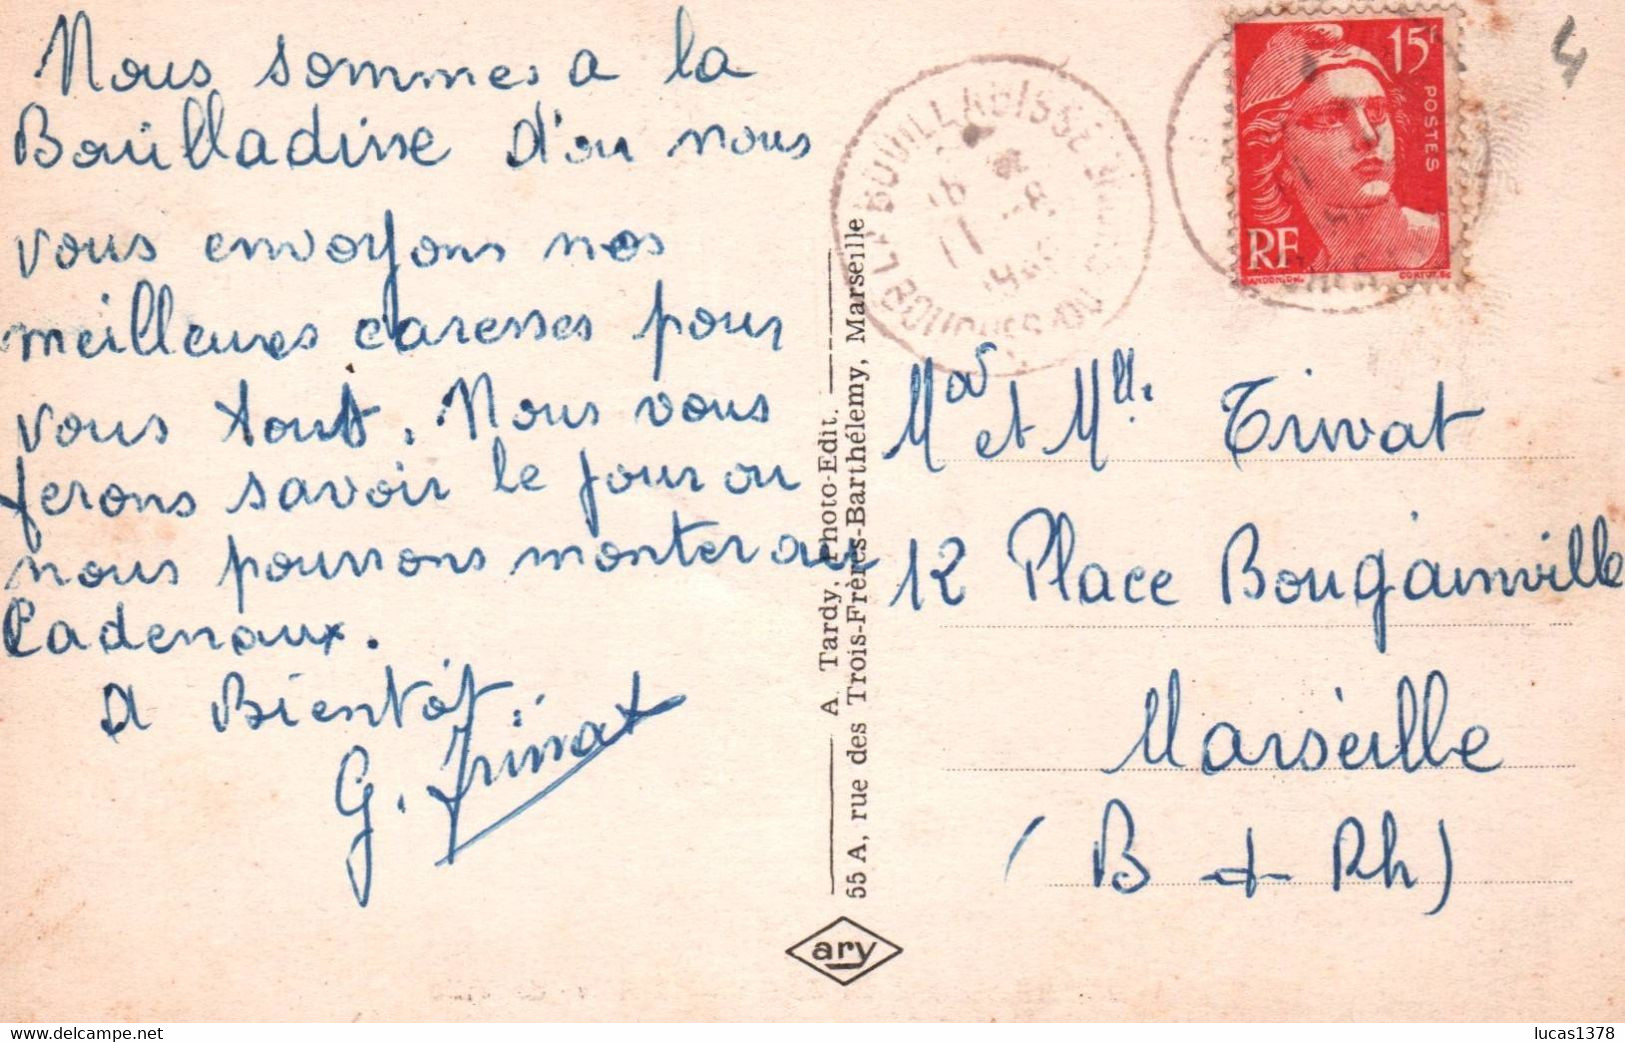 Nous sommes a la
Bouilladisse d'ou nous
vous envoyons nos
meilleures caresses pour
vous tous. Nous vous
ferons savoir le jour ou
nous pourrons monter aux
Cadenaux.
A Bientôt.
G. Trivat
A. Tardy, Photo-Edit.
55 A, rue des Trois-Frères-Barthélemy, Marseille
ary
LA BOUILLADISSE
BOUCHES-DU-RHONE
15F
POSTES
RF
GANDON.DEL.
CORTOT.SC
4
Mad et Mlle Trivat
12 Place Bougainville
Marseille
(B d Rh)
www.delcampe.net
lucas1378